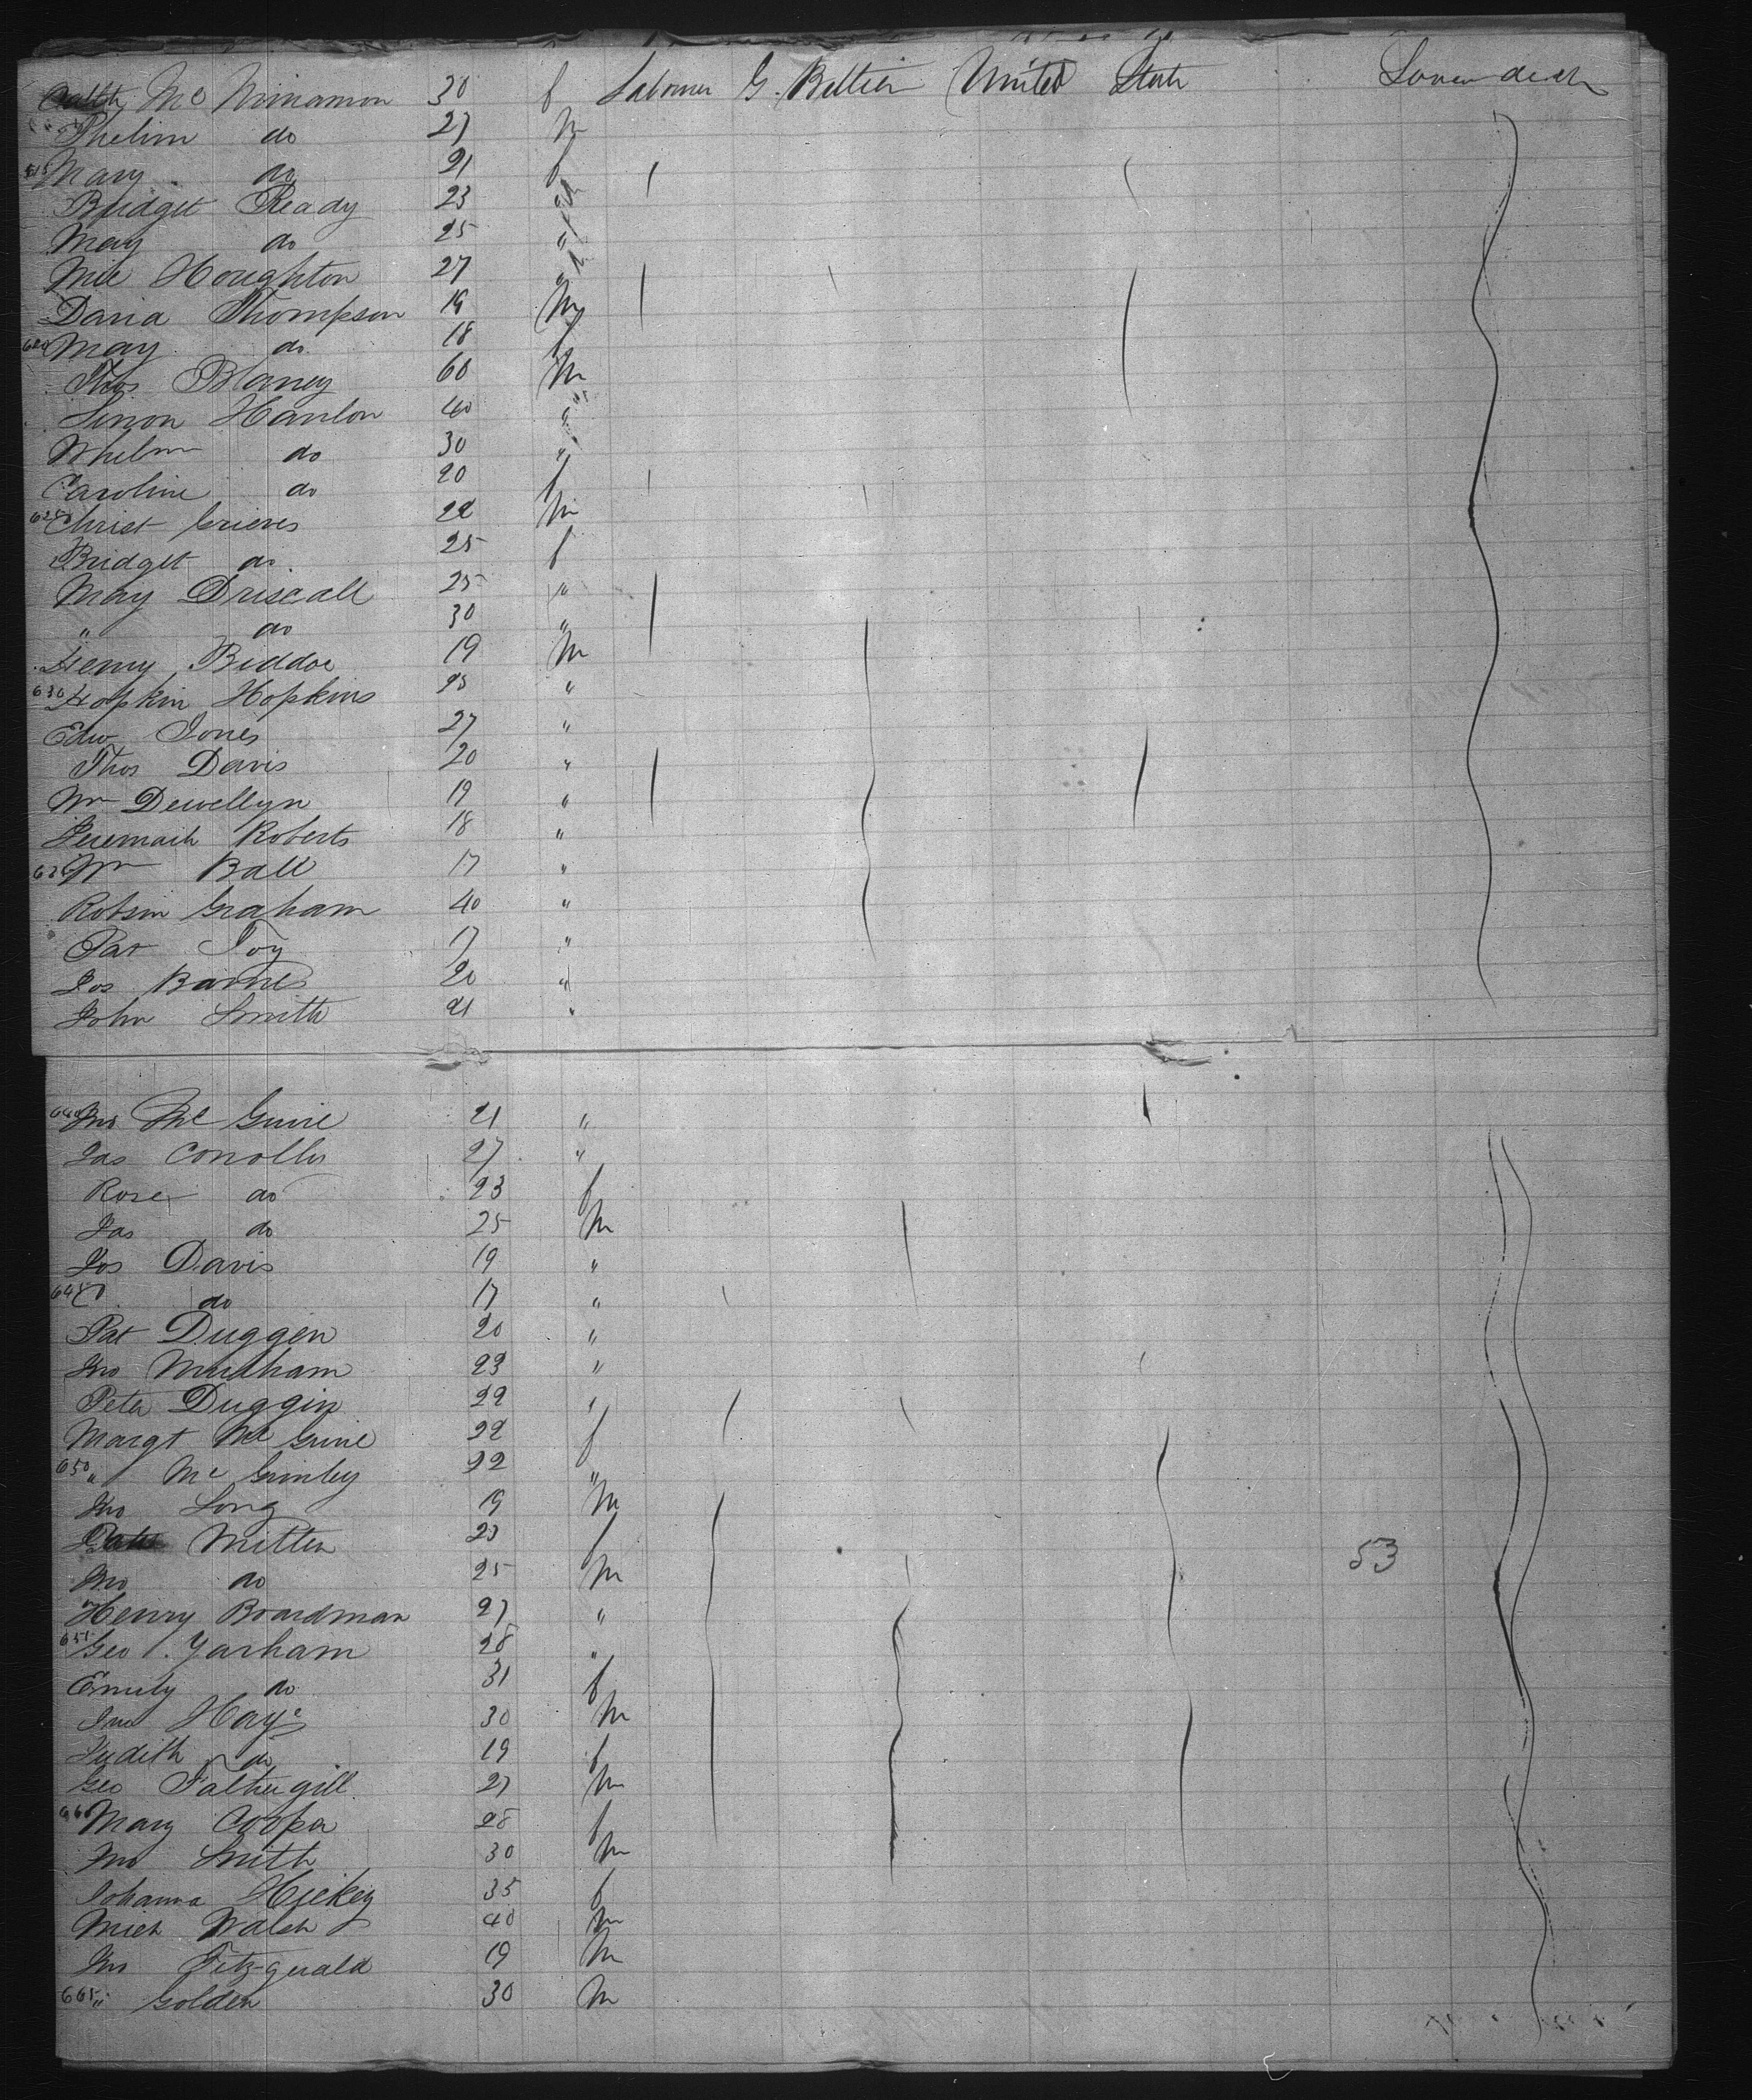 Mc Minamon 30 f Laborer G. Brittin United State Lower deck
Phelim do 27 m
615 Mary do 21 f
Bridget Ready 23 "
May do 25 "
Houghton 27 "
David Thompson 19 m
620 May do 18 f
Thos Blaney 60 m
Simon Hanlon 40 "
do 30 "
Caroline do 20 f
625 Christ Grieves 22 m
Bridget do 25 f
May Driscall 25 "
" do 30 "
Henry Biddoe 19 m
630 Hopkin Hopkins 25 "
Edw Jones 27 "
Thos Davis 20 "
Wm Dewellyn 19 "
Jeremaih Roberts 18 "
635 Wm Ball 17 "
Robsin Graham 40 "
Pat Toy 17 "
Jos Barnes 20 "
John Smith 21 "
640 Jno Mc Guire 21 "
Jas Conolly 27 "
Rose do 23 f
Jas do 25 m
Jos Davis 19 "
645 do 17 "
Pat Duggen 20 "
Jno 23 "
Peter Duggin 22 "
Margt Mc Guire 22 f
650 " Mc Ginley 22 "
Jno Long 19 m
Mitten 23 f
53
Jno do 25 m
Henry Boardman 27 "
655 Geo Yarham 28 "
Emily do 31 f
Jno Hays 30 m
Judith do 19 f
Geo Fathergill 27 m
660 Mary Cooper 28 f
Jno Smith 30 m
Johanna Hickey 35 f
Mich Walsh 40 m
Jno Fitzgerald 19 m
665 " Golden 30 m